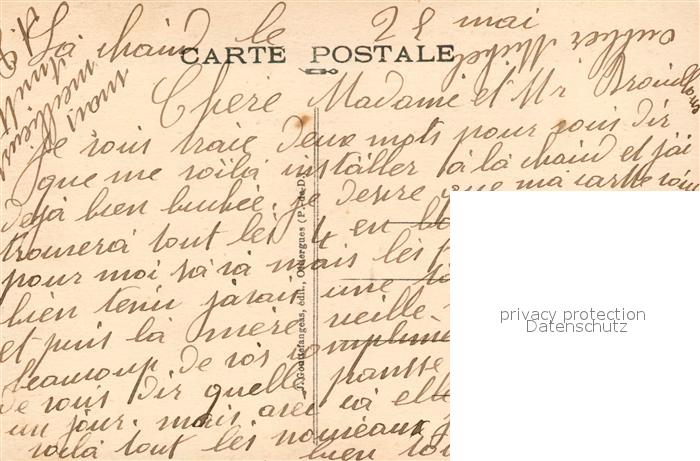 La chaud le 28 mai
CARTE POSTALE
Chere Madame et Mr
Je vous traie deux mots pour vous dir
que me voilà installer à la chaud et j'ai
dejà bien buchée. je desire que ma carte vous
trouverà tout les 4 en bo
pour moi sà và mais les
bien tenir jarais une
et puis la mère veille
beaucoup de vos complime
de vous dir quelle pansse
un jour. mais avec cà elle
voilà tout les nouveaux
bien
G. Gouttefangeas, édit., Olliergues (P.-de-D.)
mais
meilleures
privacy protection
Datenschutz